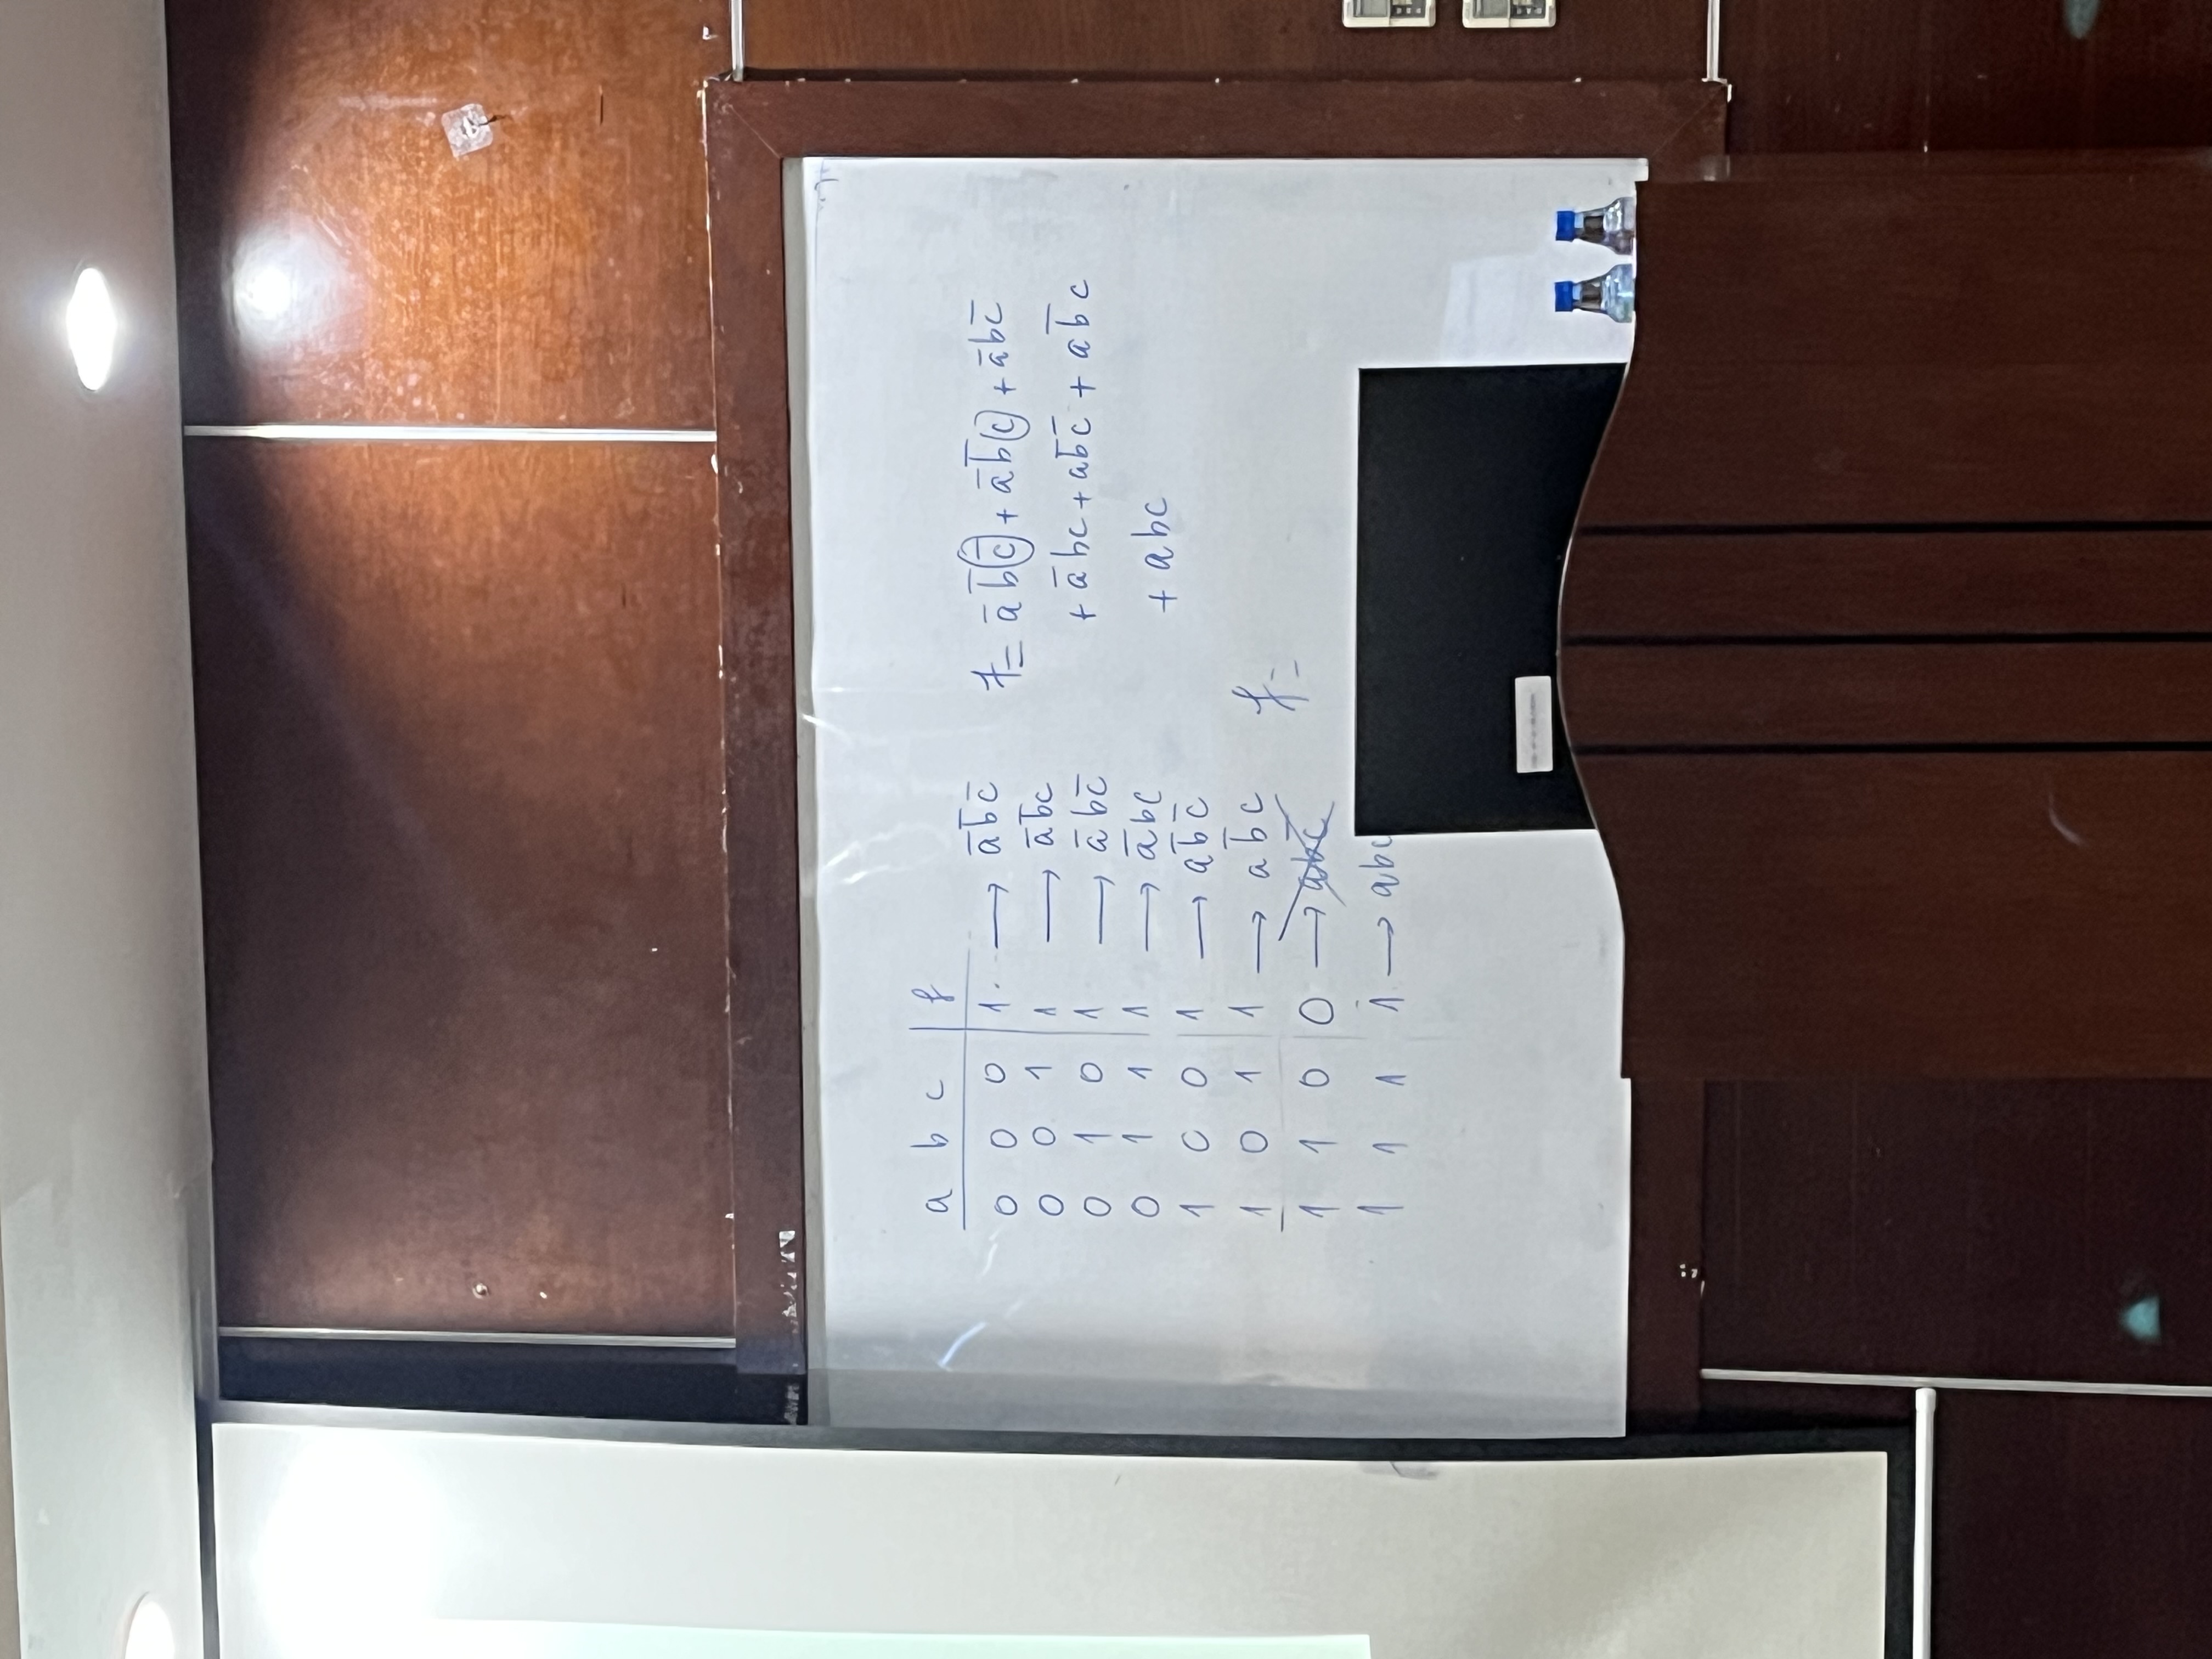 a b c | f
0 0 0 | 1. → a̅ b̅ c̅
0 0 1 | 1 → a̅ b̅ c
0 1 0 | 1 → a̅ b c̅
0 1 1 | 1 → a̅ b c
1 0 0 | 1 → a b̅ c̅
1 0 1 | 1 → a b̅ c
1 1 0 | 0 → a b c̅
1 1 1 | 1 → a b c
f = a̅ b̅ c̅ + a̅ b̅ c + a̅ b c̅
+ a̅ b c + a b̅ c̅ + a b̅ c
+ a b c
f =